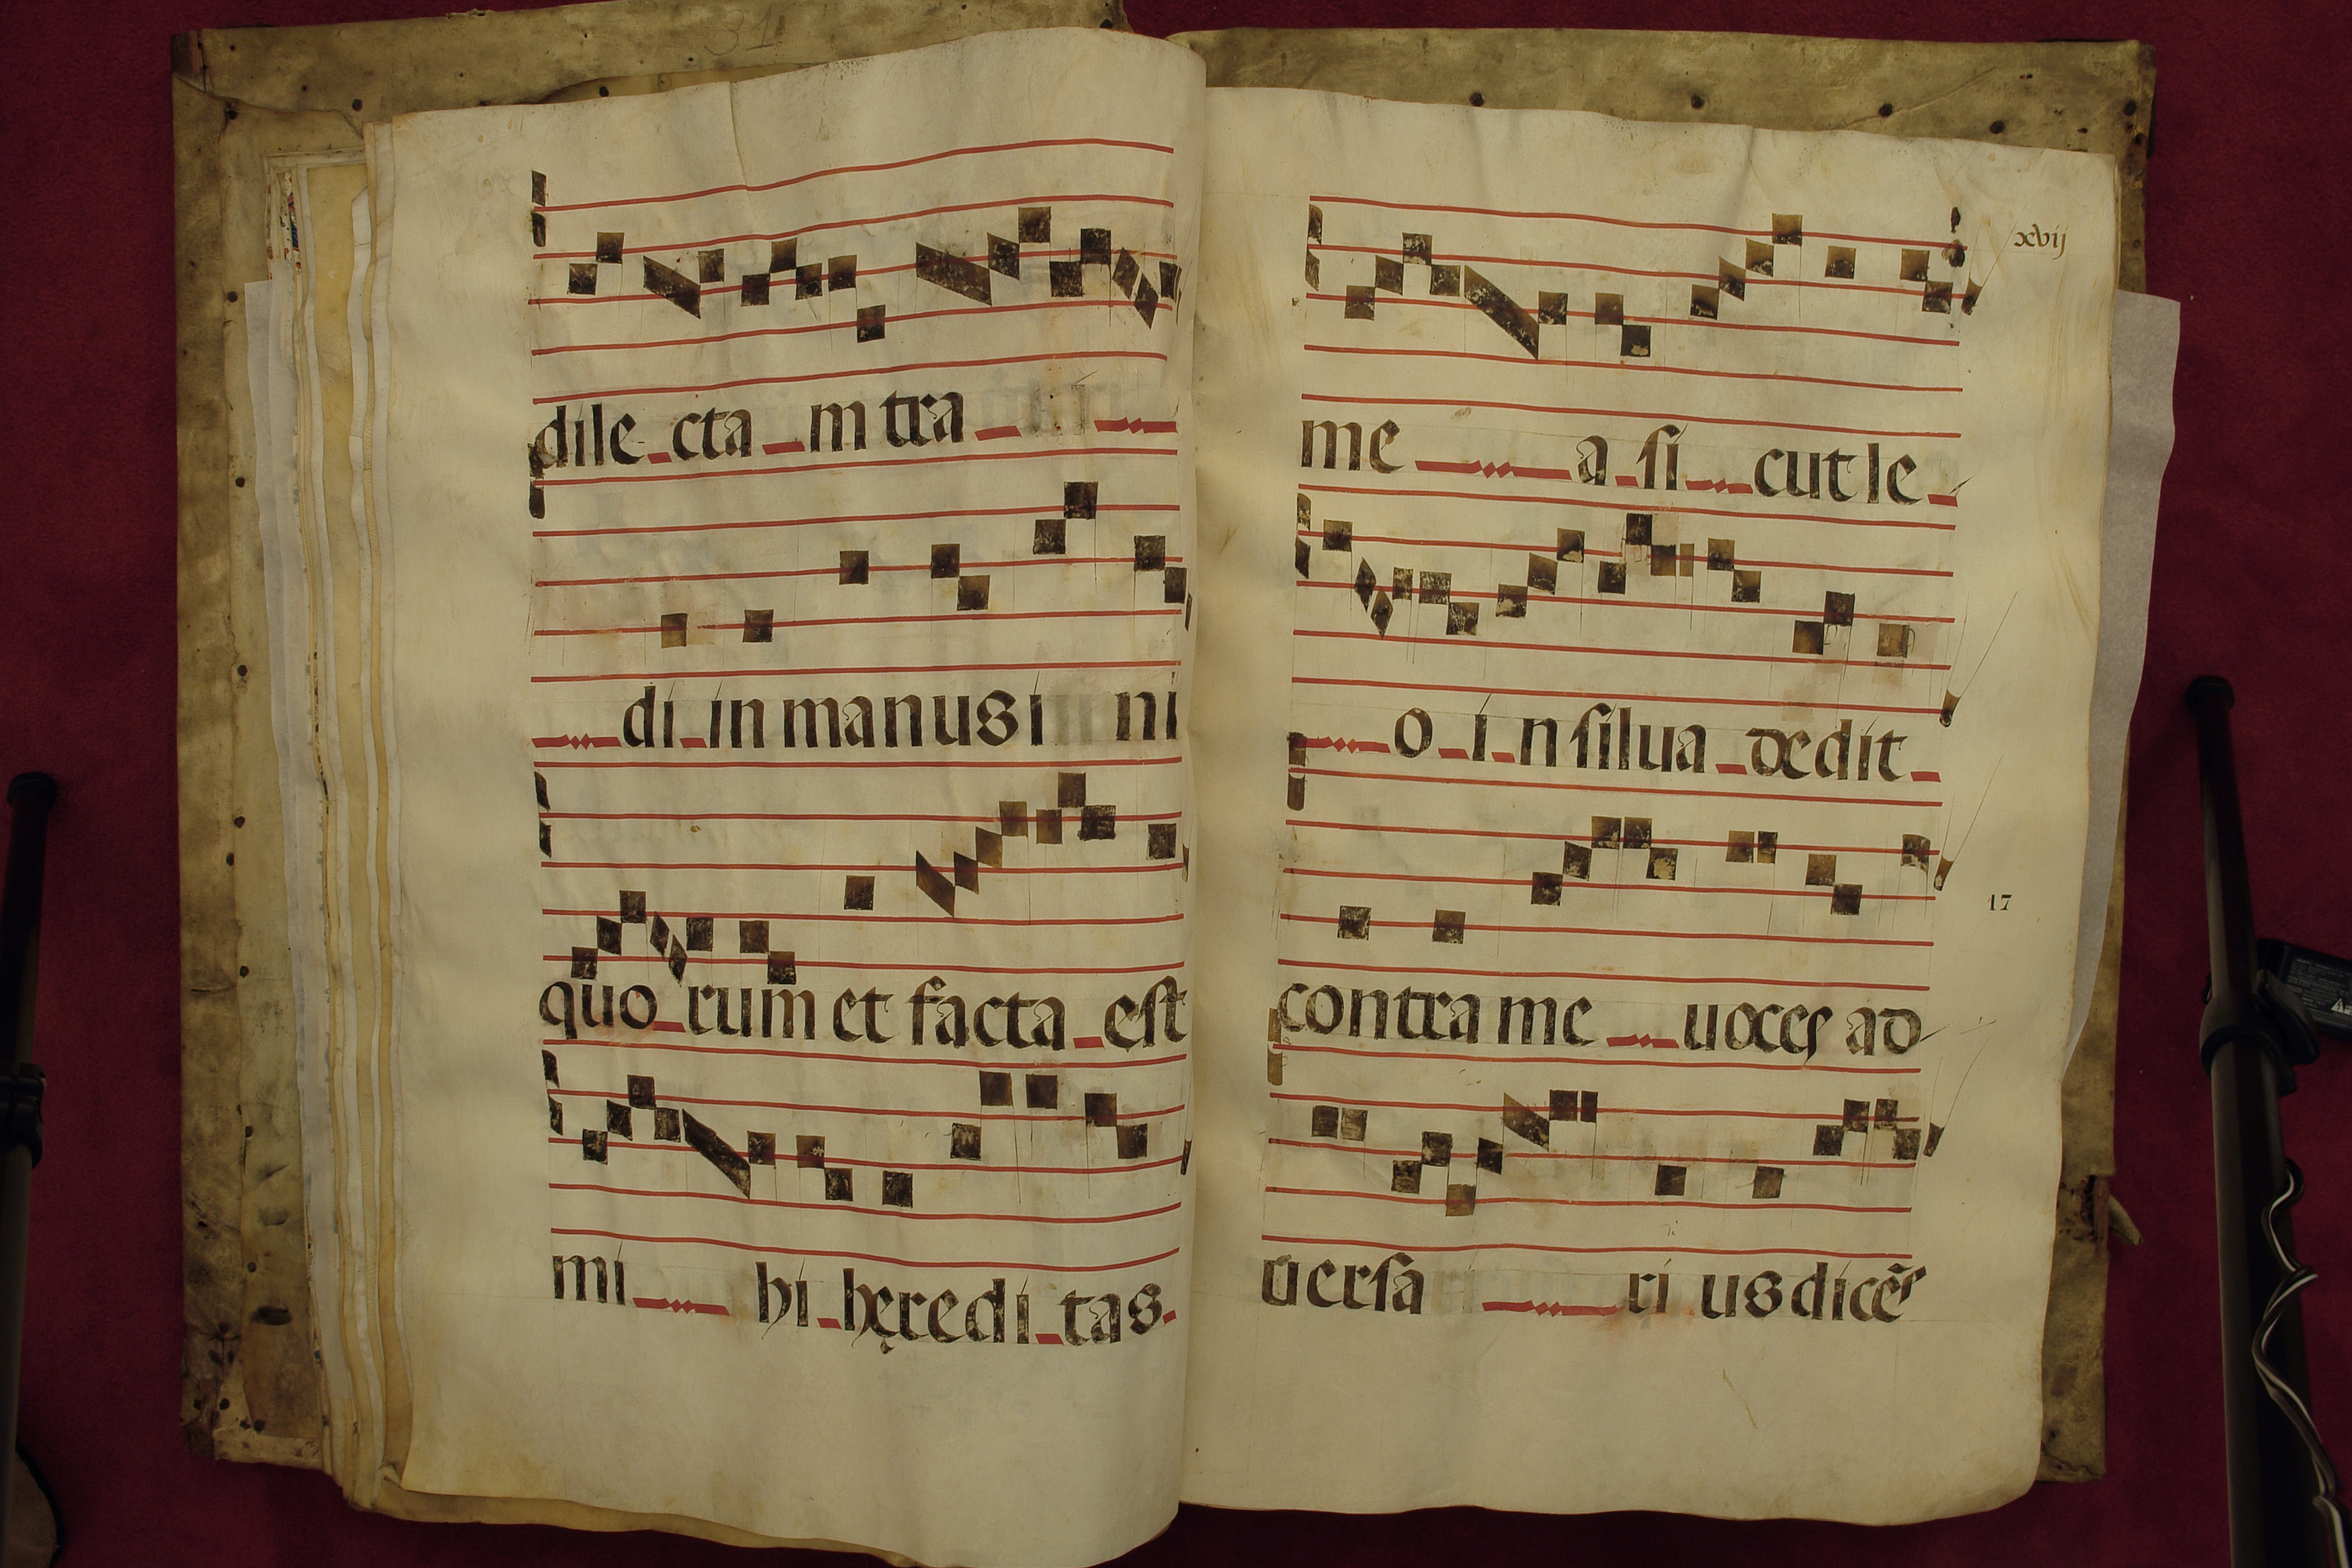 31
dile cta m tra
di in manus i ni
quo rum et facta est
mi hi hęredi tas
xvij
me a si cut le
o i n silua dedit
17
contra me uoces ad
uersa ri us dicē⁹